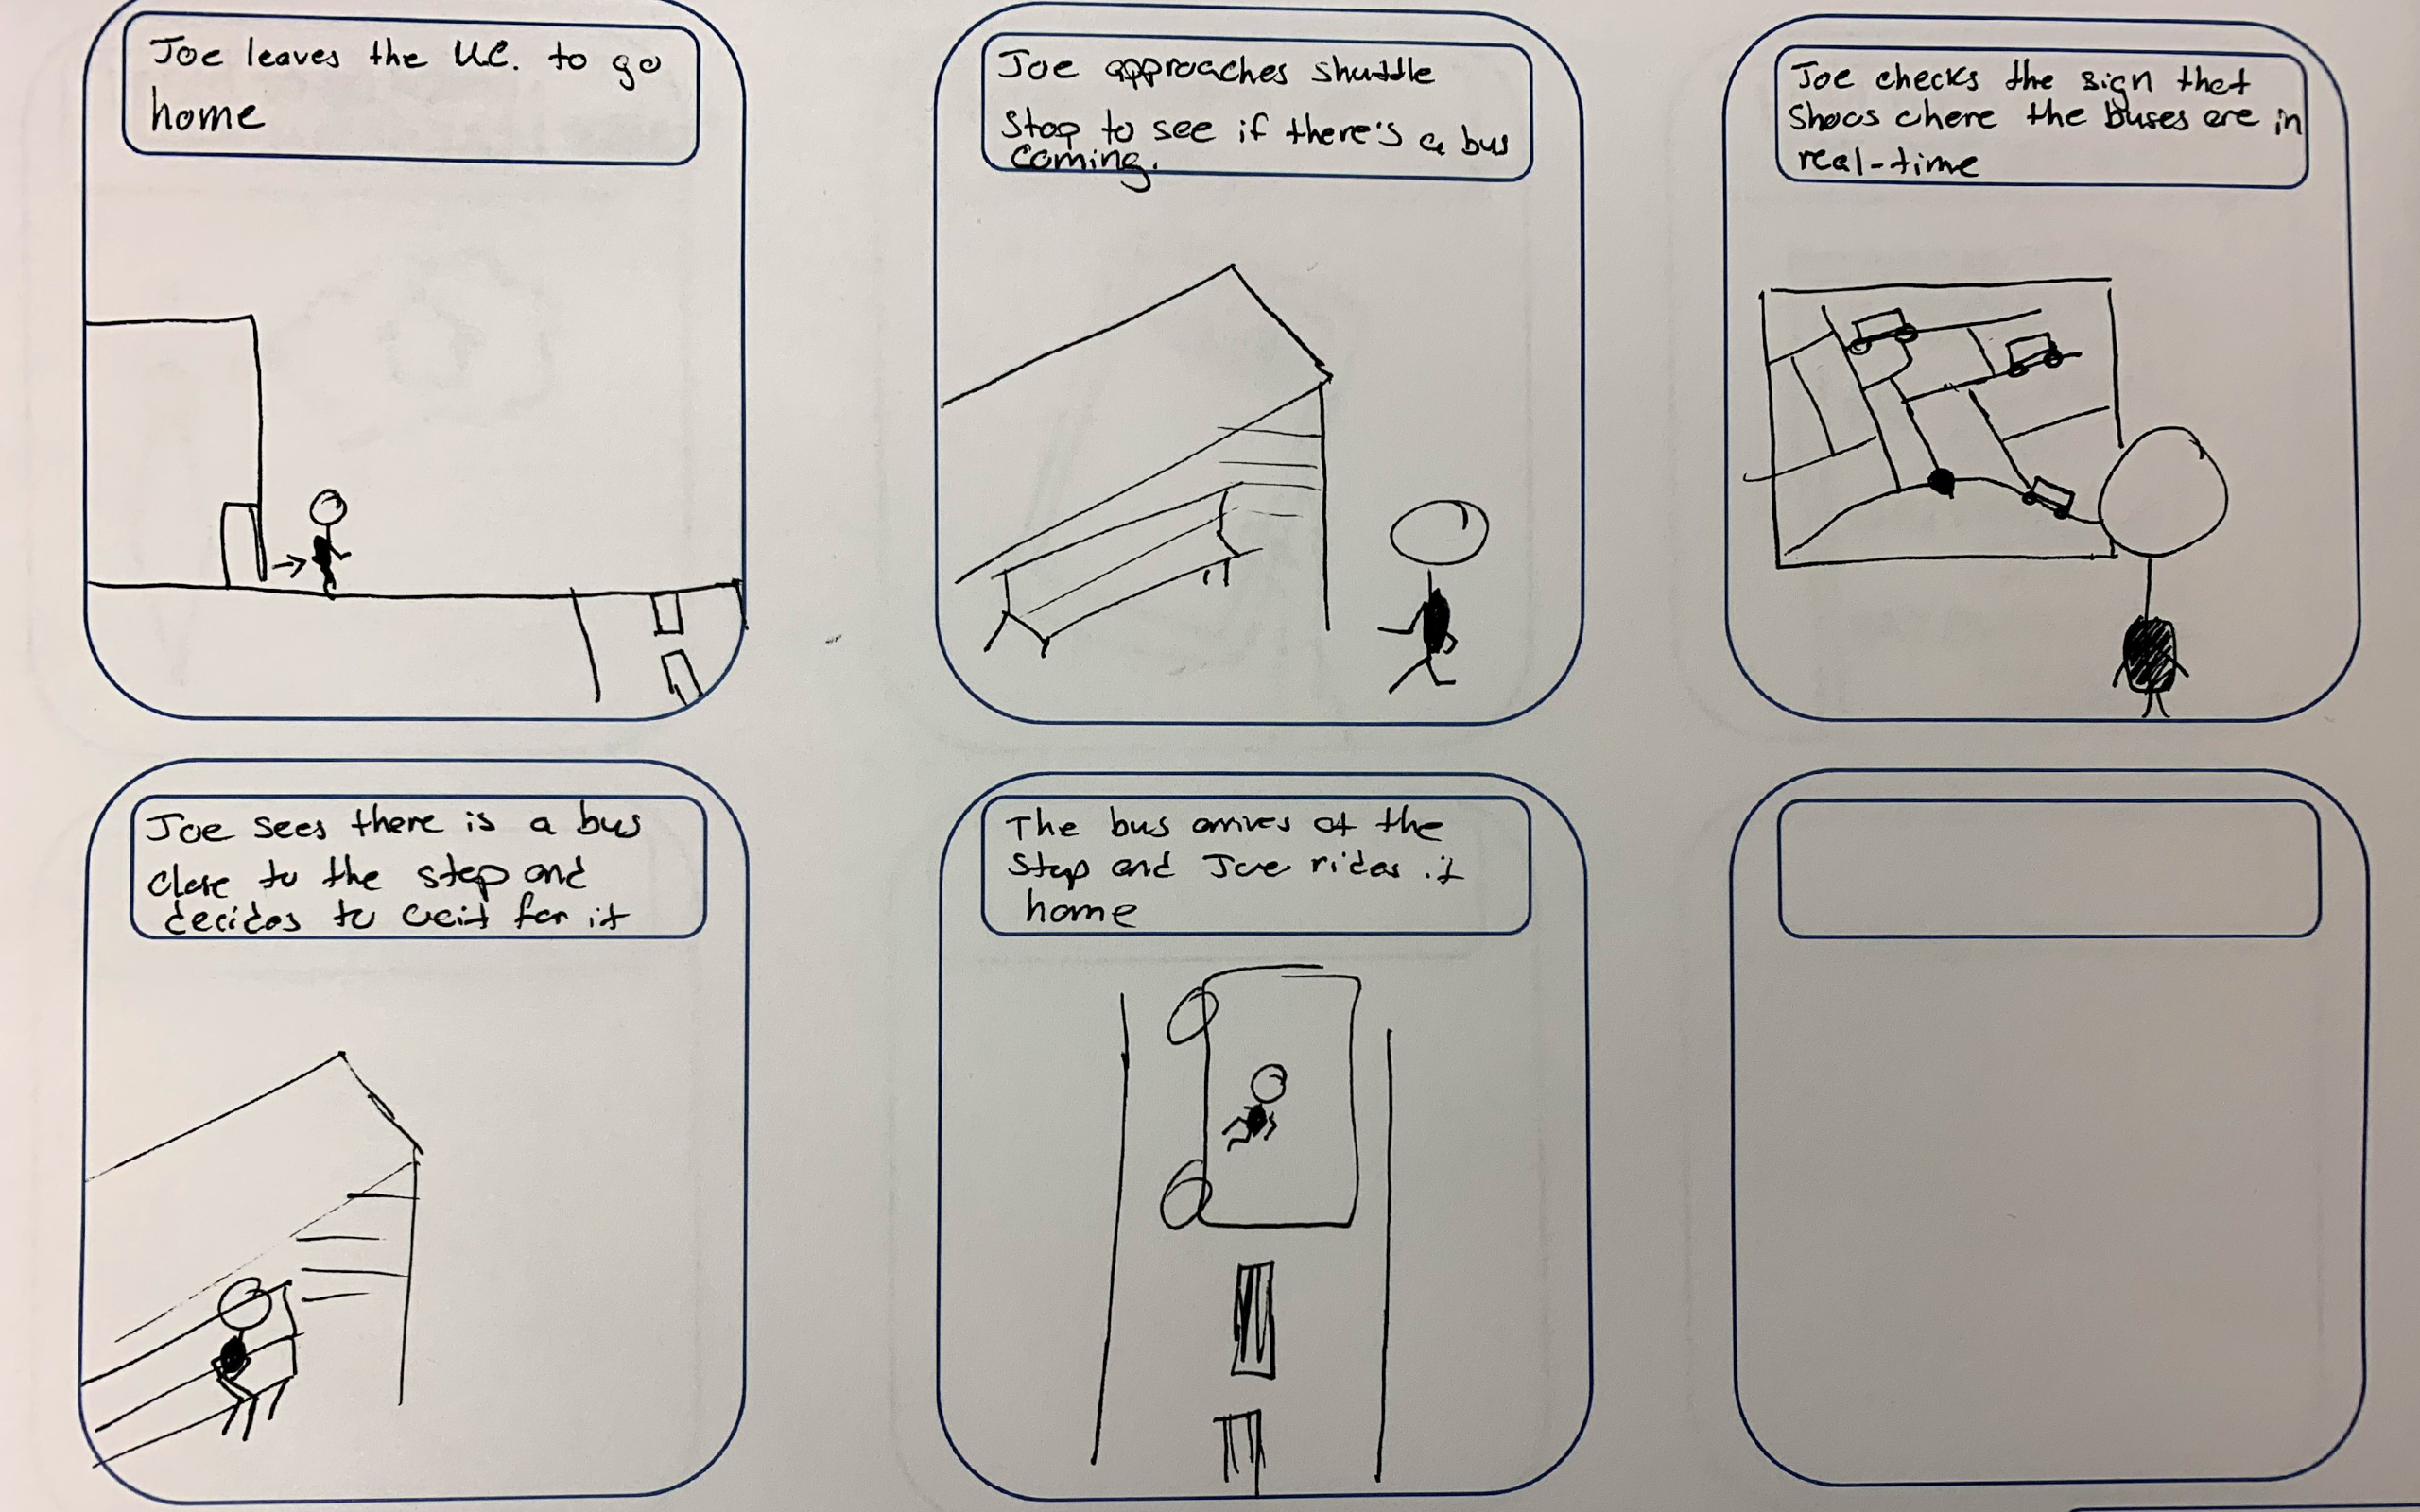 Joe leaves the U.C. to go
home
Joe approaches shuttle
stop to see if there's a bus
coming.
Joe checks the sign that
shows where the buses are in
real-time
Joe sees there is a bus
close to the stop and
decides to wait for it
The bus arrives at the
stop and Joe rides it
home